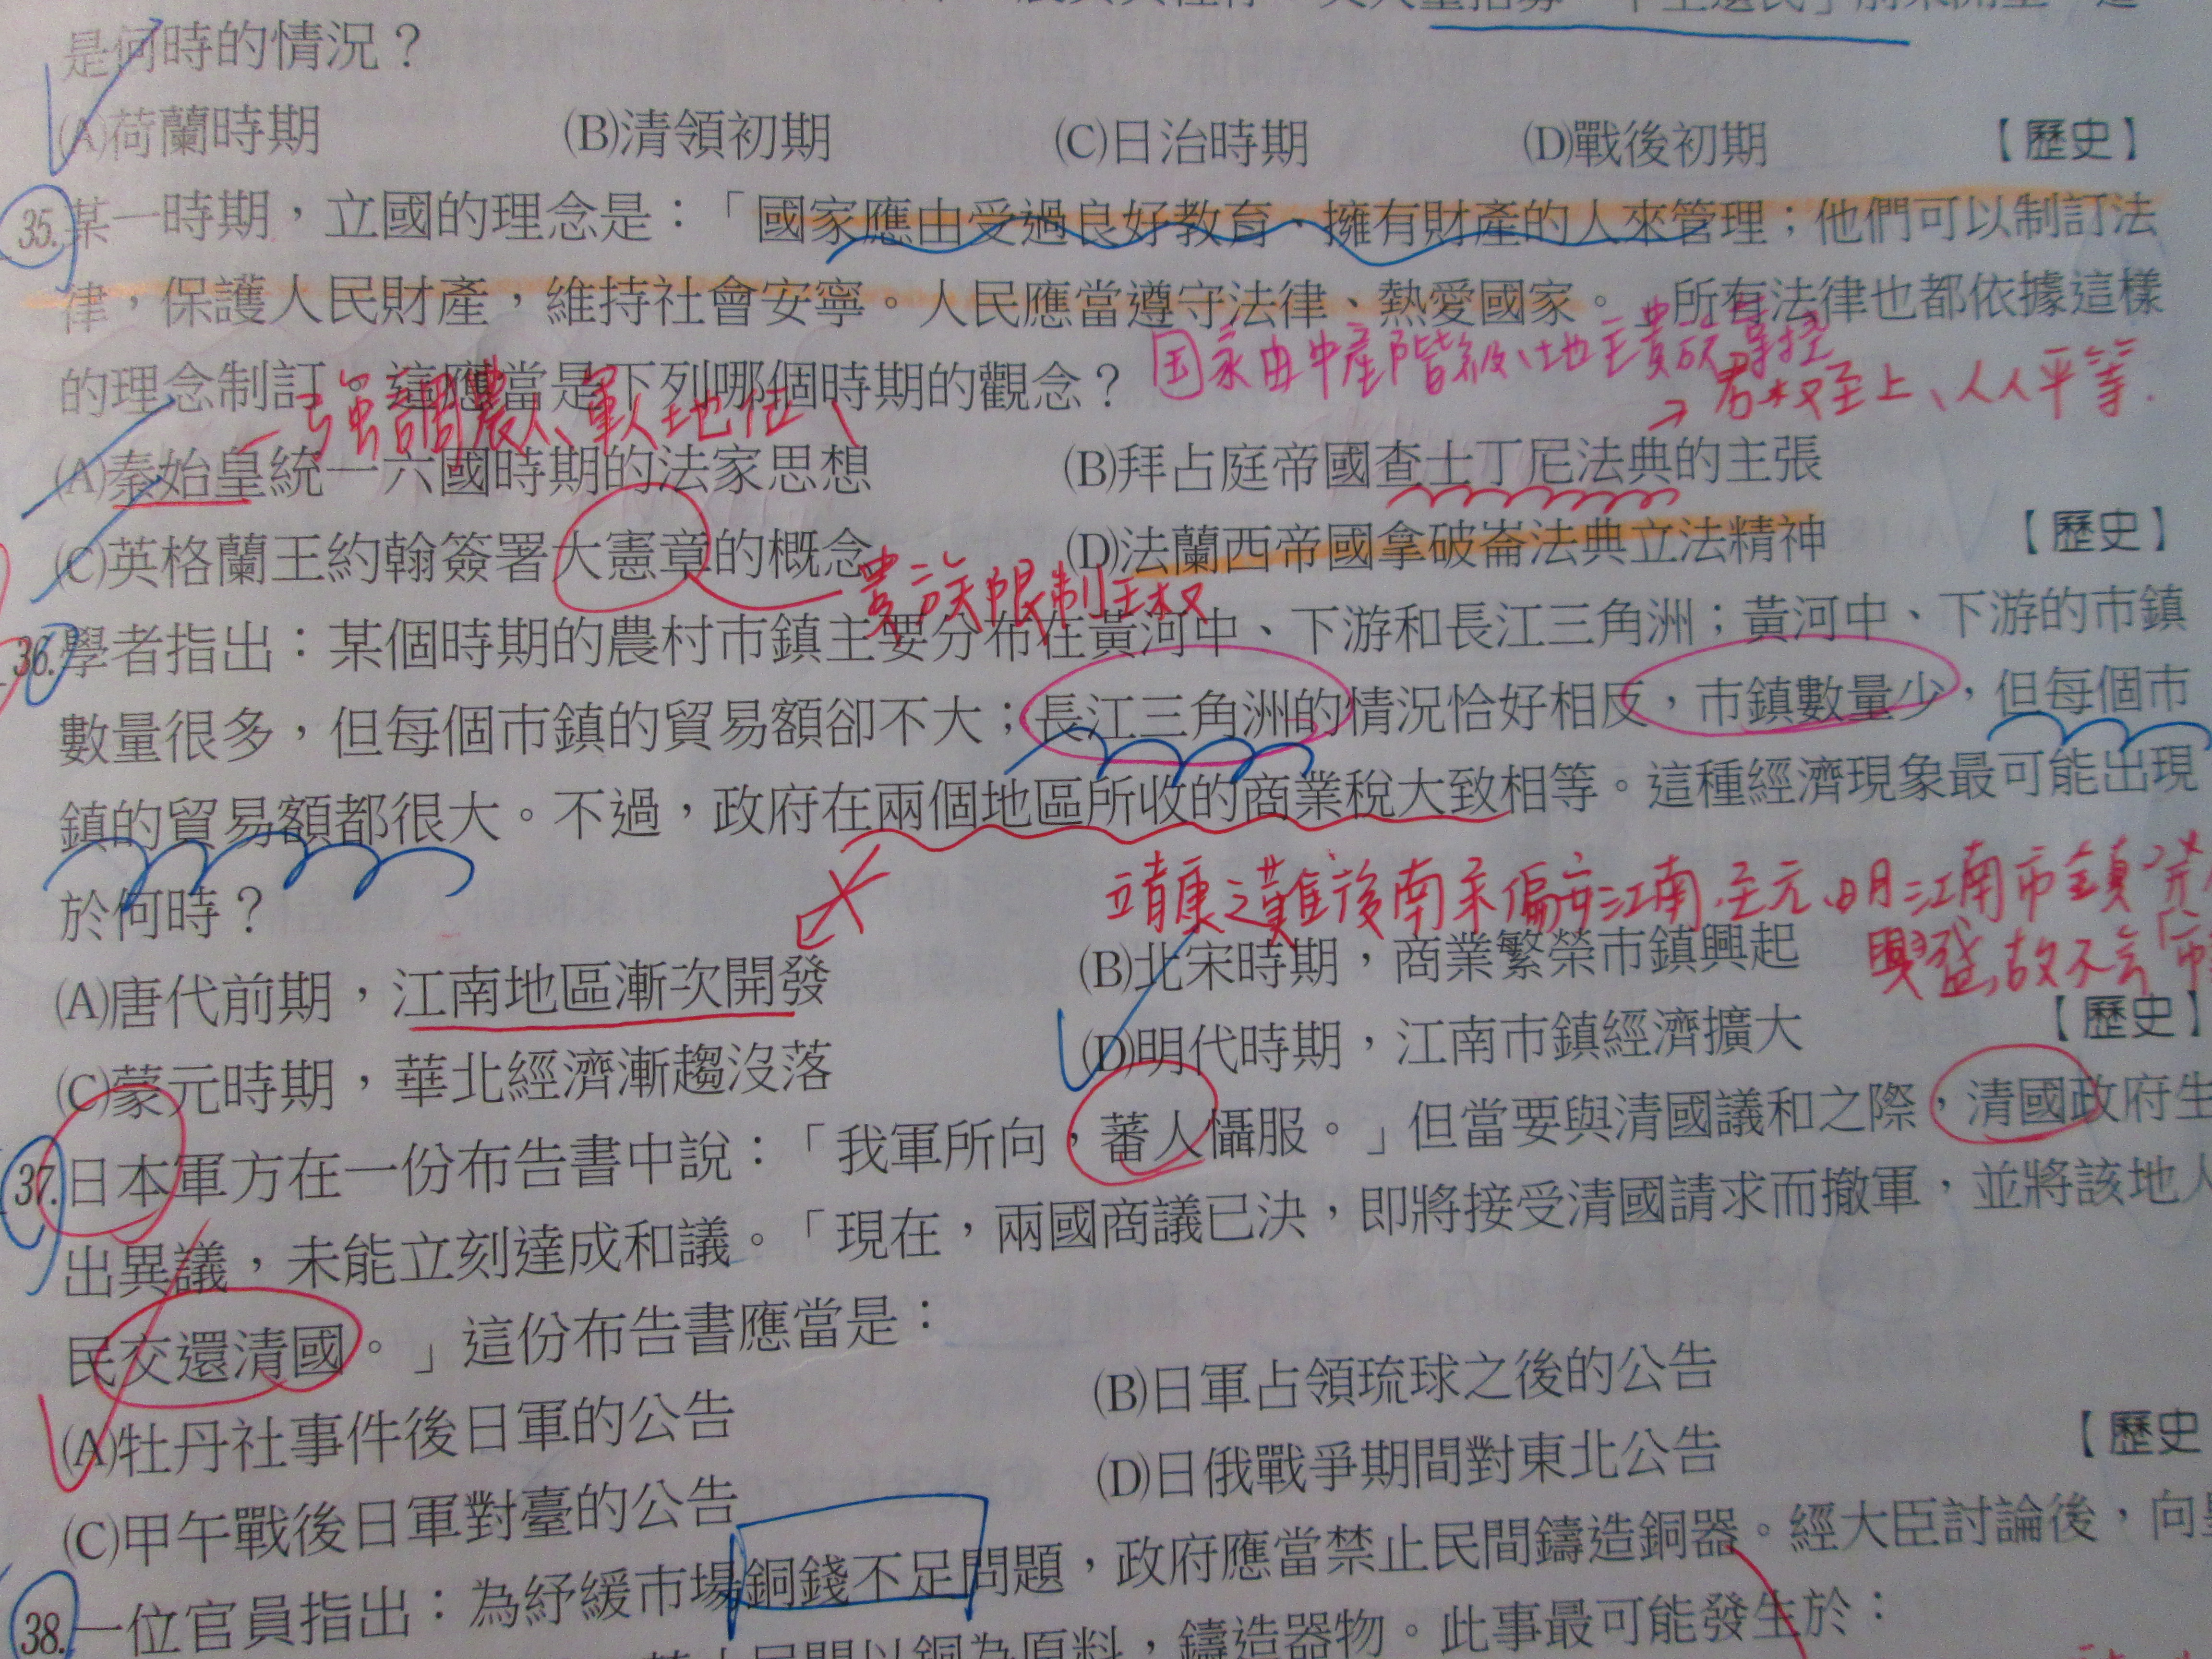 是何時的情況？
(A)荷蘭時期 (B)清領初期 (C)日治時期 (D)戰後初期 【歷史】
35.某一時期，立國的理念是：「國家應由受過良好教育、擁有財產的人來管理；他們可以制訂法
律，保護人民財產，維持社會安寧。人民應當遵守法律、熱愛國家。」所有法律也都依據這樣
的理念制訂。這應當是下列哪個時期的觀念？
国家由中產階級、地主貴族掌控
君权至上、人人平等.
強調農人、軍人地位
(A)秦始皇統一六國時期的法家思想 (B)拜占庭帝國查士丁尼法典的主張
(C)英格蘭王約翰簽署大憲章的概念 (D)法蘭西帝國拿破崙法典立法精神 【歷史】
貴族限制王权
36.學者指出：某個時期的農村市鎮主要分布在黃河中、下游和長江三角洲；黃河中、下游的市鎮
數量很多，但每個市鎮的貿易額卻不大；長江三角洲的情況恰好相反，市鎮數量少，但每個市
鎮的貿易額都很大。不過，政府在兩個地區所收的商業稅大致相等。這種經濟現象最可能出現
於何時？
靖康之難後南宋偏安江南，至元、明江南市鎮
興盛，故不言
(A)唐代前期，江南地區漸次開發 (B)北宋時期，商業繁榮市鎮興起
(C)蒙元時期，華北經濟漸趨沒落 (D)明代時期，江南市鎮經濟擴大 【歷史】
37.日本軍方在一份布告書中說：「我軍所向，蕃人懾服。」但當要與清國議和之際，清國政府生
出異議，未能立刻達成和議。「現在，兩國商議已決，即將接受清國請求而撤軍，並將該地人
民交還清國。」這份布告書應當是：
(A)牡丹社事件後日軍的公告 (B)日軍占領琉球之後的公告
(C)甲午戰後日軍對臺的公告 (D)日俄戰爭期間對東北公告 【歷史
38.一位官員指出：為紓緩市場銅錢不足問題，政府應當禁止民間鑄造銅器。經大臣討論後，向
民間以銅為原料，鑄造器物。此事最可能發生於：